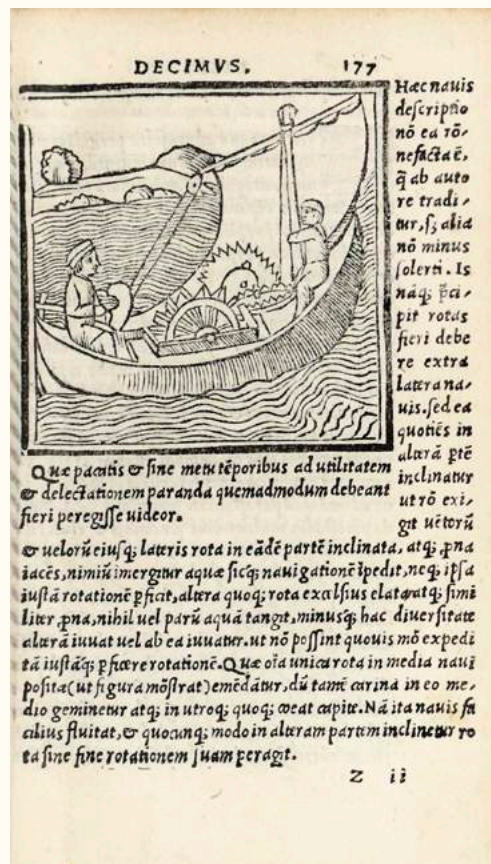 DECIMVS. 177
Hæc nauis
descriptio
nō ea rō-
ne facta ē,
q̄ ab auto
re tradi-
tur, sꝫ alia
nō minus
solerti. Is
nāqꝫ p̄ci-
pit rotas
fieri debe
re extra
latera na-
uis. sed ea
quotiēs in
alterā p̄tē
inclinatur
ut rō exi-
git uētorū
Quæ pacatis & sine metu tēporibus ad utilitatem
& delectationem paranda quemadmodum debeant
fieri peregisse uideor.
& uelorū eiusqꝫ lateris rota in eādē partē inclinata, atqꝫ ꝓna
iacēs, nimiū imergitur aquæ sicqꝫ nauigationē īpedit, neqꝫ ipsa
iustā rotationē ꝑficit, altera quoqꝫ rota excelsius elata atqꝫ simi
liter ꝓna, nihil uel parū aquā tangit, minusqꝫ hac diuersitate
alterā iuuat uel ab ea iuuatur. ut nō possint quouis mō expedi
tā iustāqꝫ ꝑficere rotationē. Quæ oīa unica rota in media naui
posita (ut figura mōstrat) emēdātur, dū tamē carina in eo me-
dio geminetur atqꝫ in utroqꝫ quoqꝫ coeat capite. Nā ita nauis fa
cilius fluitat, & quocunqꝫ modo in alteram partem inclinetur ro
ta sine fine rotationem suam peragit.
Z ii